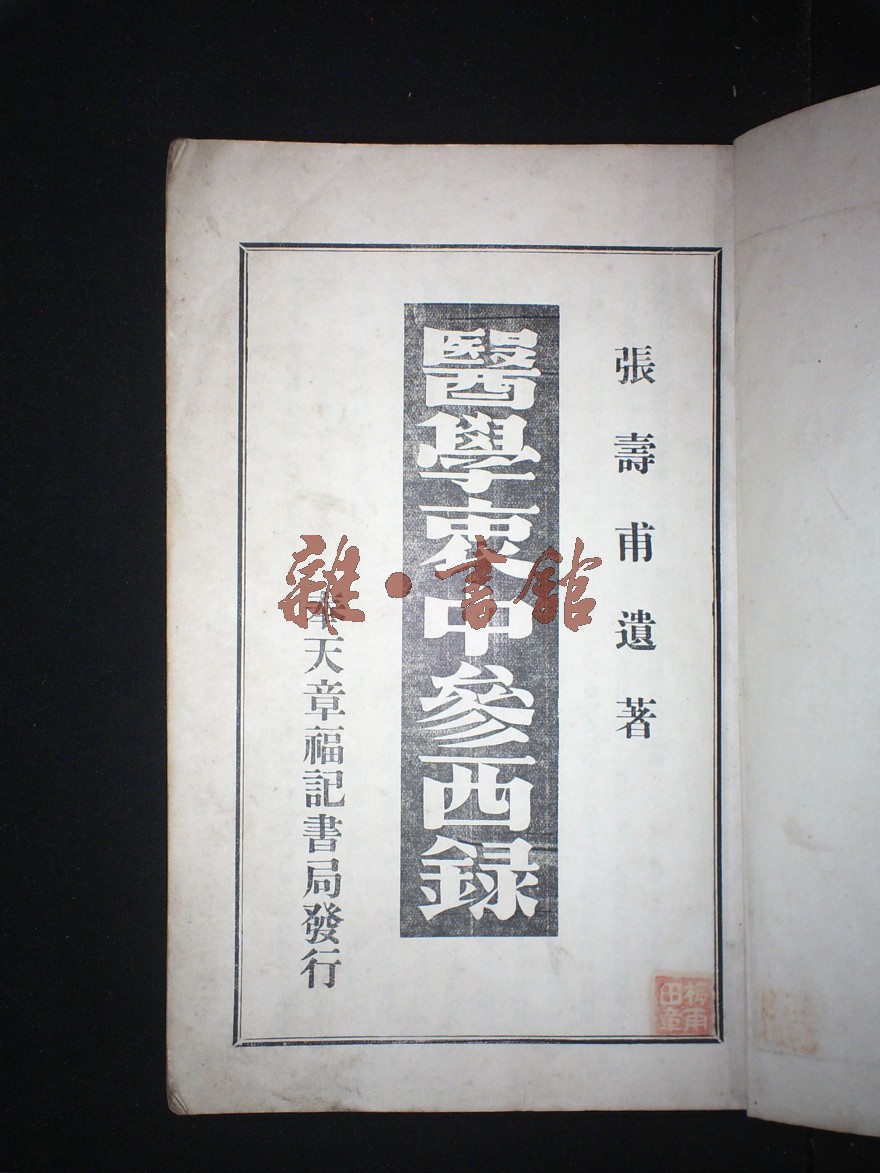 張壽甫遺著
醫學衷中參西録
奉天章福記書局發行
雜·書館